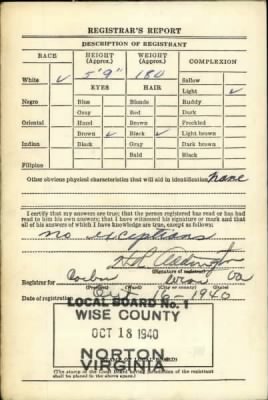 REGISTRAR'S REPORT
DESCRIPTION OF REGISTRANT
RACE HEIGHT (Approx.) WEIGHT (Approx.) COMPLEXION
White ✓ 5'9" 180 Sallow
EYES HAIR Light ✓
Negro Blue Blonde Ruddy
Gray Red Dark
Oriental Hazel Brown Freckled
Brown ✓ Black ✓ Light brown
Indian Black Gray Dark brown
Bald Black
Filipino
Other obvious physical characteristics that will aid in identification None
I certify that my answers are true; that the person registered has read or has had
read to him his own answers; that I have witnessed his signature or mark and that
all of his answers of which I have knowledge are true, except as follows:
no exceptions
(Signature of registrar)
Registrar for Va
(Precinct) (Ward) (City or county) (State)
Date of registration 1940
LOCAL BOARD No. 1
WISE COUNTY
OCT 18 1940
NORTON,
VIRGINIA
(The stamp of the Local Board having jurisdiction of the registrant
shall be placed in the above space.)